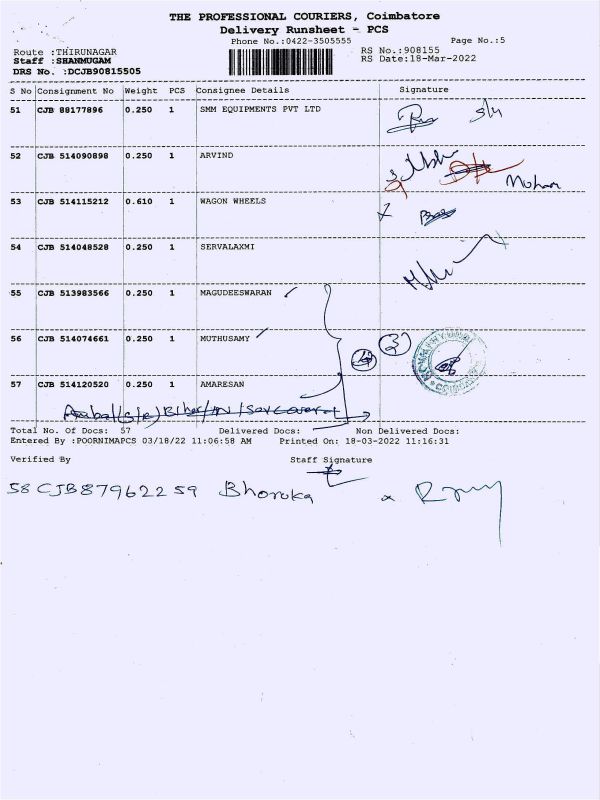 THE PROFESSIONAL COURIERS, Coimbatore
Delivery Runsheet - PCS
Phone No.:0422-3505555 Page No.:5
Route :THIRUNAGAR RS No.:908155
Staff :SHANMUGAM RS Date:18-Mar-2022
DRS No. :DCJB90815505
S No Consignment No Weight PCS Consignee Details Signature
51 CJB 88177896 0.250 1 SMM EQUIPMENTS PVT LTD
52 CJB 514090898 0.250 1 ARVIND
Mohan
53 CJB 514115212 0.610 1 WAGON WHEELS
54 CJB 514048528 0.250 1 SERVALAXMI
55 CJB 513983566 0.250 1 MAGUDEESWARAN
56 CJB 514074661 0.250 1 MUTHUSAMY
3
57 CJB 514120520 0.250 1 AMARESAN
Total No. Of Docs: 57 Delivered Docs: Non Delivered Docs:
Entered By :POORNIMAPCS 03/18/22 11:06:58 AM Printed On: 18-03-2022 11:16:31
Verified By Staff Signature
58 CJB87962259 Bhoruka